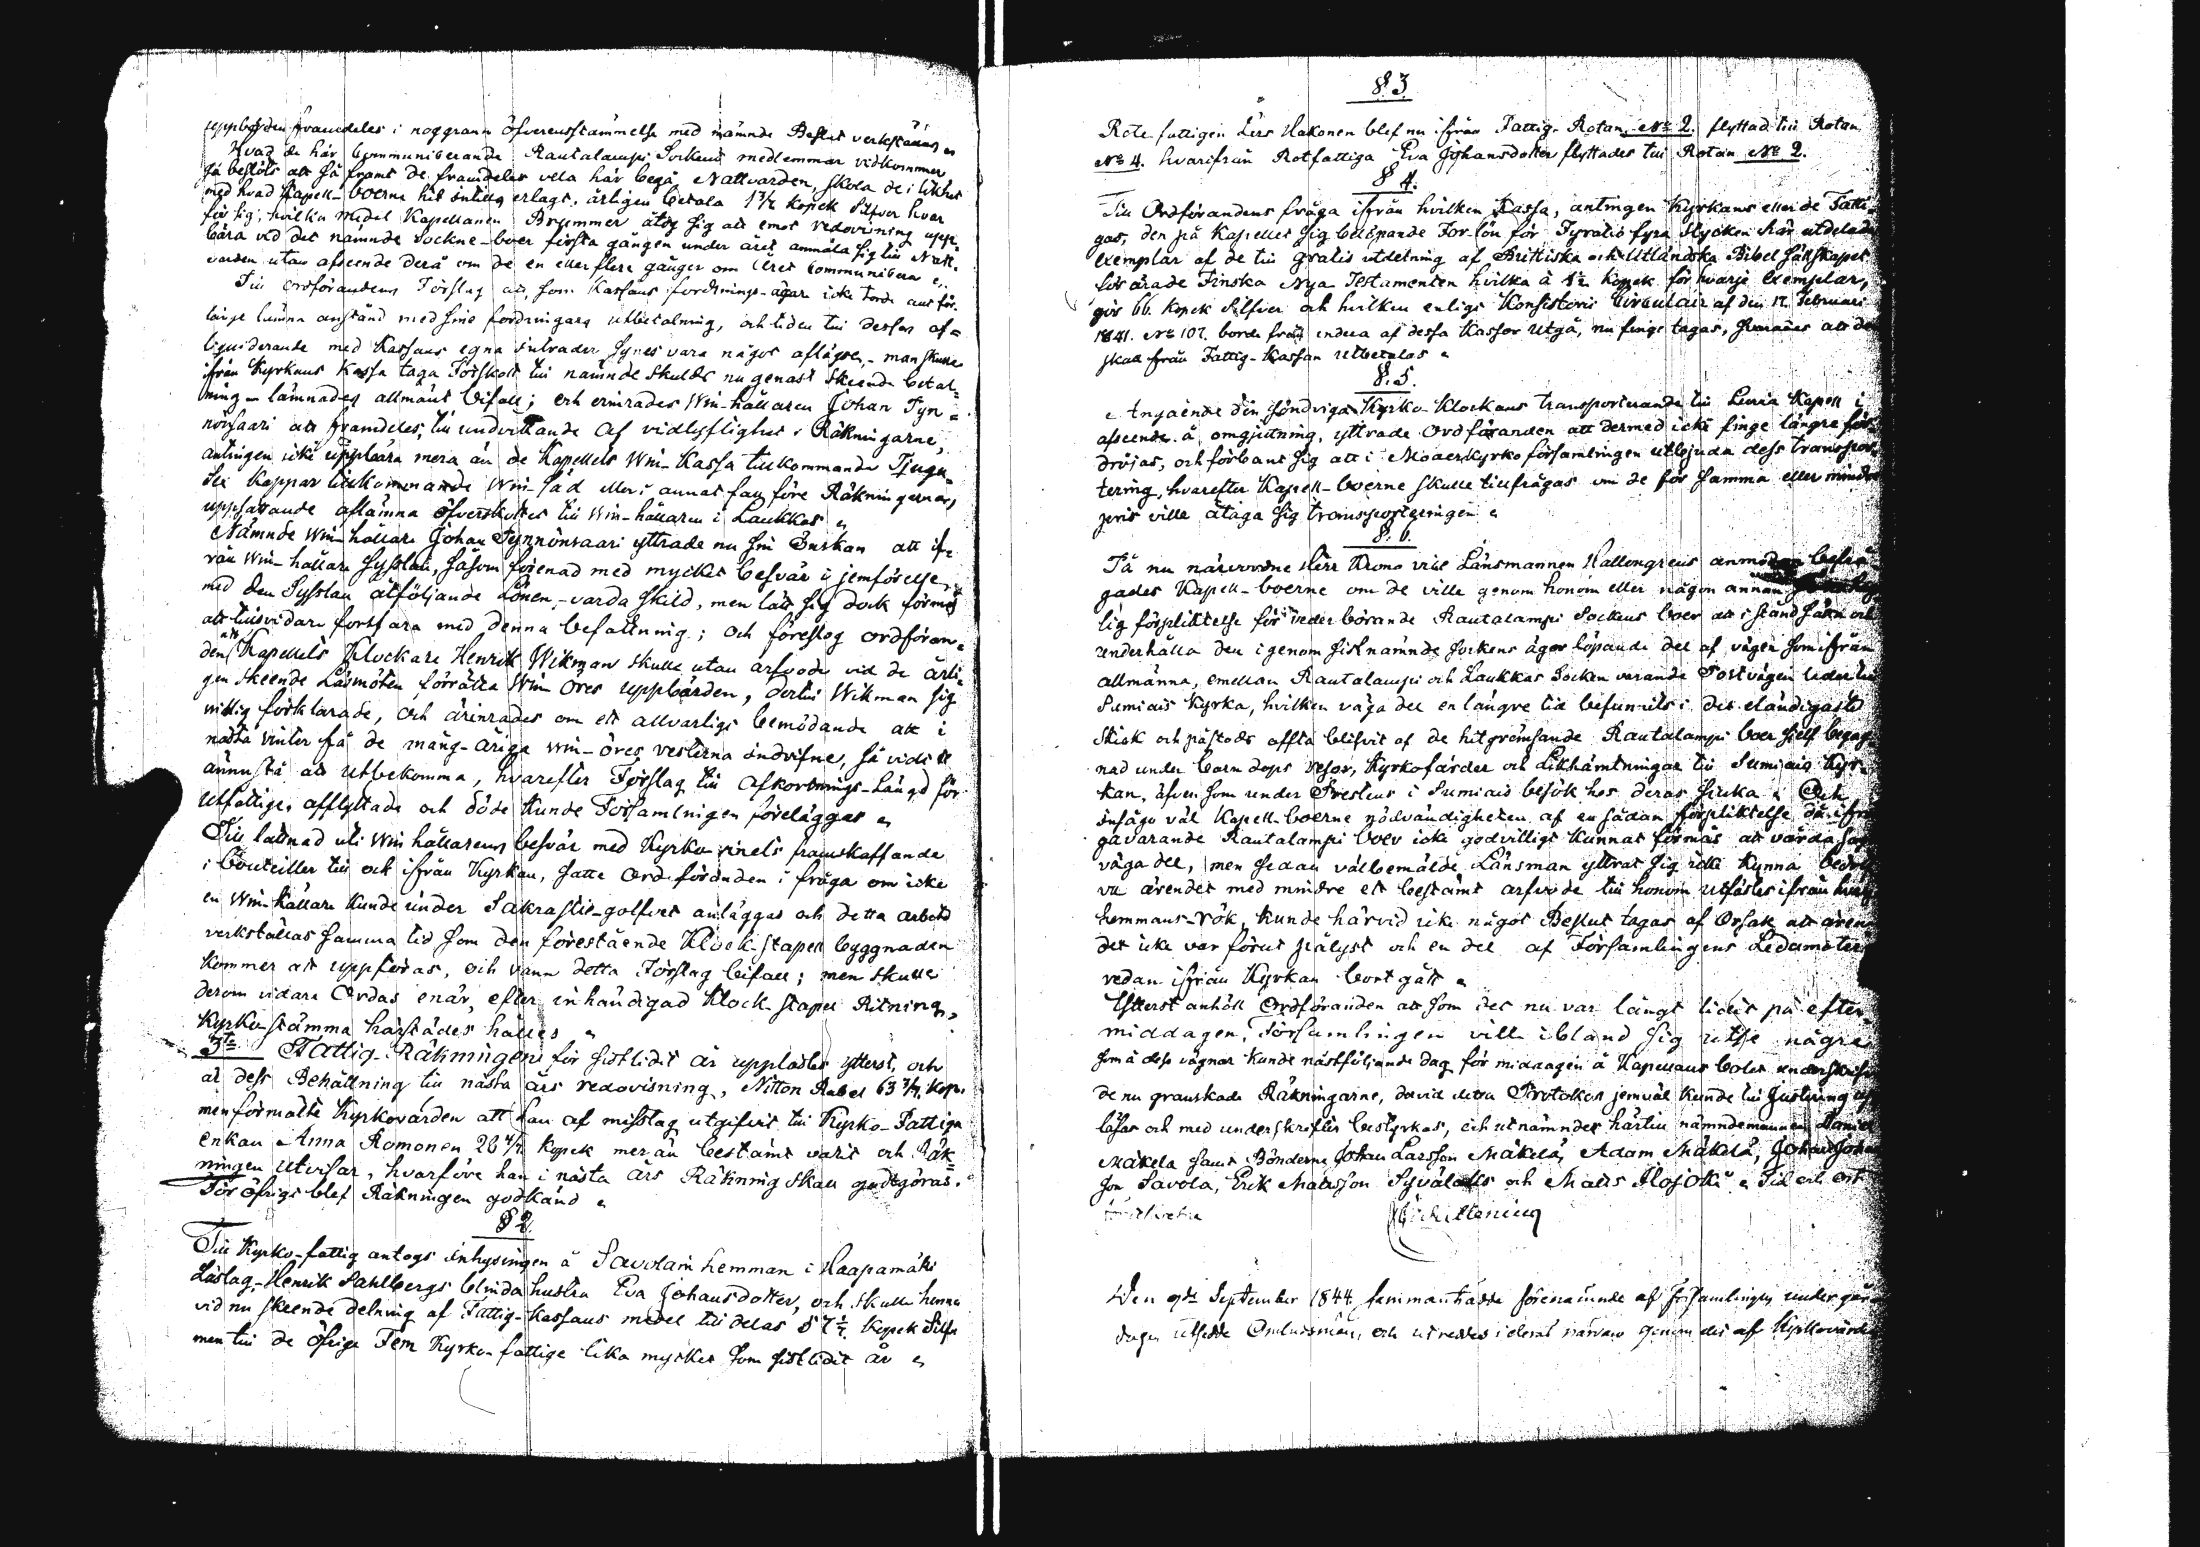 uppbörden framdeles i noggrann öfverensstämmelse med nämnde Beslut verkställas
Hvad de här Communiserande Rautalampi Sockens medlemmar vidkommer
så beslöts att så framt de framdeles vela här begå Nattvarden, skola de i likhet
med hvad Kapell-boerne hit intills erlagt, årligen betala 1 3/7 kopek Silfver hvar
för sig, hvilka medel Kapellanen Brummer åtog sig att emot redovisning upp=
bära vid det nämnde Sockne-boer första gången under året anmäla sig till Natt=
varden utan afseende derå om de en eller flere gånger om Året Communisera
Till Ordförandens Förslag att, som Kassans fordrings-ägare icke torde
länge lämna anstånd med sine fordringars utbetalning, och tiden till dessas af=
liquiderande med Kassans egna intrader synes vara något aflägsen, man skulle
ifrån Kyrkans Kassa taga Förskott till nämnde Skulds nu genast skeende betal=
ning – lämnades allmänt bifall; och erinrades Win-hållaren Johan Tyn=
nörsaari att framdeles, till undvikande af vidlyftighet i Räkningarne,
antingen icke uppbära mera än de Kapellets Win-Kassa tillkommande Tjugu=
sex kappar tillkommande Win-säd eller i annat fall före Räkningernas
uppsättande aflämna öfverskottet till Win-hållaren i Laukkas
Nämnde Win-hållare Johan Tynnörsaari yttrade nu sin Önskan att if=
rån Win-hållare Sysslan, såsom förenad med mycket besvär i jemförelse
med den Sysslan åtföljande Lönen, – varda skild, men lät sig dock förmås
att tillsvidare fortfara med denna befattning; och föreslog ordföran=
den att Kapellets Klockare Henrik Wikman skulle utan arfvode vid de årli=
gen skeende Läsmöten förrätta Win Öres uppbörden, dertill Wikman sig
willig förklarade, och ärinrades om ett allvarligt bemödande att i
nästa vinter få de mång-åriga win-öres resterna indrifne, så vidt
ännu stå att utbekomma, hvarefter Förslag till Afkortnings-Längd för
Utfattige, afflyttade och döde kunde Församlingen föreläggas
Till lättnad uti Win hållarens besvär med Kyrko vinets framskaffande
i Bouteiller till och ifrån Kyrkan, satte Ordföranden i fråga om icke
en Win-källare kunde under Sakrastie-golfvet anläggas och detta arbete
verkställas samma tid som den förestående Klock-stapel byggnaden
kommer att uppföras, och vann detta Förslag bifall; men skulle
derom vidare Ordas enär, efter inhändigad Klock-stapel Ritning,
Kyrko-stämma härstädes hålles
3o Fattig-Räkningen för sistlidit år upplästes ytterst, och
är dess Behållning till nästa års redovisning, Nitton Rubel 63 3/7 kop.
men förmälte Kyrkovärden att han af misstag utgifvit till Kyrko-Fattiga
enkan Anna Romonen 28 4/7 kopek mer än bestämt varit och Räk=
ningen utvisar, hvarföre han i nästa års Räkning skall godtgöras.
För öfrigt blef Räkningen godkänd
§ 2.
Till Kyrko-fattig antogs inhysingen å Savolain hemman i Haapamäki
Läslag, Henrik Sahlbergs blinda hustru Eva Johansdotter, och skulle henne
vid nu skeende delning af Fattig-Kassans medel till delas 57 1/7 kopek Silfr
men till de öfrige Fem Kyrko-fattige lika mycket som sistlidit år
§ 3.
Rote fattigen Lars Hakonen blef nu ifrån Fattig-Rotan No 2. flyttad till Rotan
No 4. hvarifrån Rotfattiga Eva Johansdotter flyttades till Rotan No 2.
§ 4.
Till Ordförandens fråga ifrån hvilken Kassa, antingen Kyrkans eller de Fatti=
gas, den på Kapellet sig belöpande For-lön för Fyratio fyra stycken här utdelade
exemplar af de till gratis utdelning af Brittiska och Utländska Bibel Sällskapet
förärade Finska Nya Testamenten hvilka à 1½ kopek för hvarje exemplar,
gör 66. kopek Silfver och hvilken enligt Konsistorii Circulair af den 17. Februari
1841. No 107. borde från endera af dessa Kassor utgå, nu finge tagas, svarades att de
skall från Fattig-Kassan utbetalas
§. 5.
Angående den söndriga Kyrko-Klockans transporterande till Kapell i
afseende å omgjutning, yttrade Ordföranden att dermed icke finge längre för=
dröjas, och förbant sig att i Moderkyrko församlingen utbjuda dess transpor=
tering, hvarefter Kapell-boerne skulle tillfrågas om de för samma eller mindre
pris ville åtaga sig transporteringen
§. 6.
På nu närvarande Herr Krono vice Länsmannen Hallongrens anmodan befrå=
gades Kapell-boerne om de ville genom honom eller någon annan
lig förpliktelse för vederbörande Rautalampi Sockens boer att i stånd sätta och
underhålla den igenom sistnämnde sockens ägor löpande del af vägen som ifrån
allmänna, emellan Rautalampi och Laukkas Socken varande Postvägen leder till
Sumiais Kyrka, hvilken väga del en längre tid befunnits i det eländigaste
Skick och påstods offta blifvit af de hitgränsande Rautalampi boer sielf begag=
nad under barn dops resor, Kyrkofärder och Likhämtningar till Sumiais Kyr=
kan, äfven som under Prestens i Sumiais besök hos deras sjuka. Och
insågo väl Kapell-boerne nödvändigheten af en sådan förpliktelse då ifrå=
gavarande Rautalampi boer icke godvilligt kunnat förmås att vårda sagde
väga del, men sedan välbemälde Länsman yttrat sig icke kunna bedrif=
va ärendet med mindre ett bestämt arfvode till honom utfästes ifrån hvarje
hemmans-rök, kunde härvid icke något Beslut tagas af Orsak att ären=
det icke var förut pålyst och en del af Församlingens Ledamöter
redan ifrån Kyrkan bort gått
Ytterst anhöll Ordföranden att som det nu var långt lidit på efter=
middagen, Församlingen ville ibland sig utse några
som å dess vägnar kunde nästföljande dag för middagen å Kapellans bolet underskrifva
de nu granskade Räkningarne, då vid detta Protokoll jemväl kunde till Justering upp=
läsas och med underskrifter bestyrkas, och utnämndes härtill nämndemannen Daniel
Mäkelä samt Bönderne Johan Larsson Mäkelä, Adam Mäkelä, Johan Johans
son Savola, Erik Matsson Syvälaks och Matts Ilojoki. Tid och ort
Den 9de September 1844 sammanträdde förenämnde af Församlingen under går=
dagen utsedde Ombudsmän, och utreddes i deras närvaro genom det af Kyrkovärden